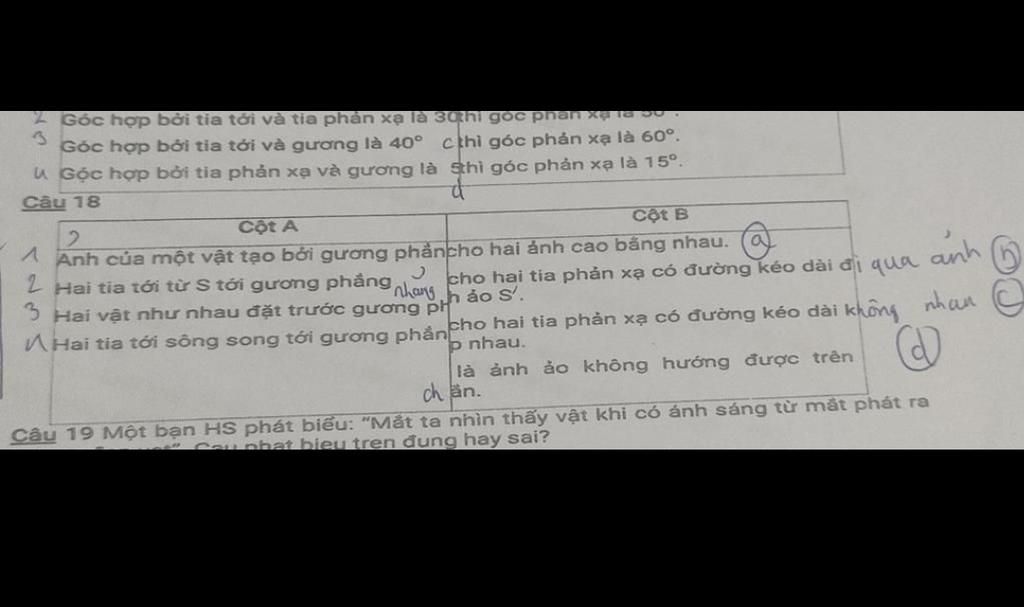 2 Góc hợp bởi tia tới và tia phản xạ là 30 thì góc phản xạ là 50°.
3 Góc hợp bởi tia tới và gương là 40° c thì góc phản xạ là 60°.
4 Góc hợp bởi tia phản xạ và gương là 5 thì góc phản xạ là 15°.
d
Câu 18
Cột A Cột B
1 Ảnh của một vật tạo bởi gương phẳn cho hai ảnh cao bằng nhau. a
2 Hai tia tới từ S tới gương phẳng cho hai tia phản xạ có đường kéo dài đi qua ảnh b
h ảo S'.
3 Hai vật như nhau đặt trước gương ph
cho hai tia phản xạ có đường kéo dài không nhau c
4 Hai tia tới sông song tới gương phẳn
p nhau.
là ảnh ảo không hướng được trên d
ch ắn.
Câu 19 Một bạn HS phát biểu: “Mắt ta nhìn thấy vật khi có ánh sáng từ mắt phát ra
Câu phát biểu trên đung hay sai?